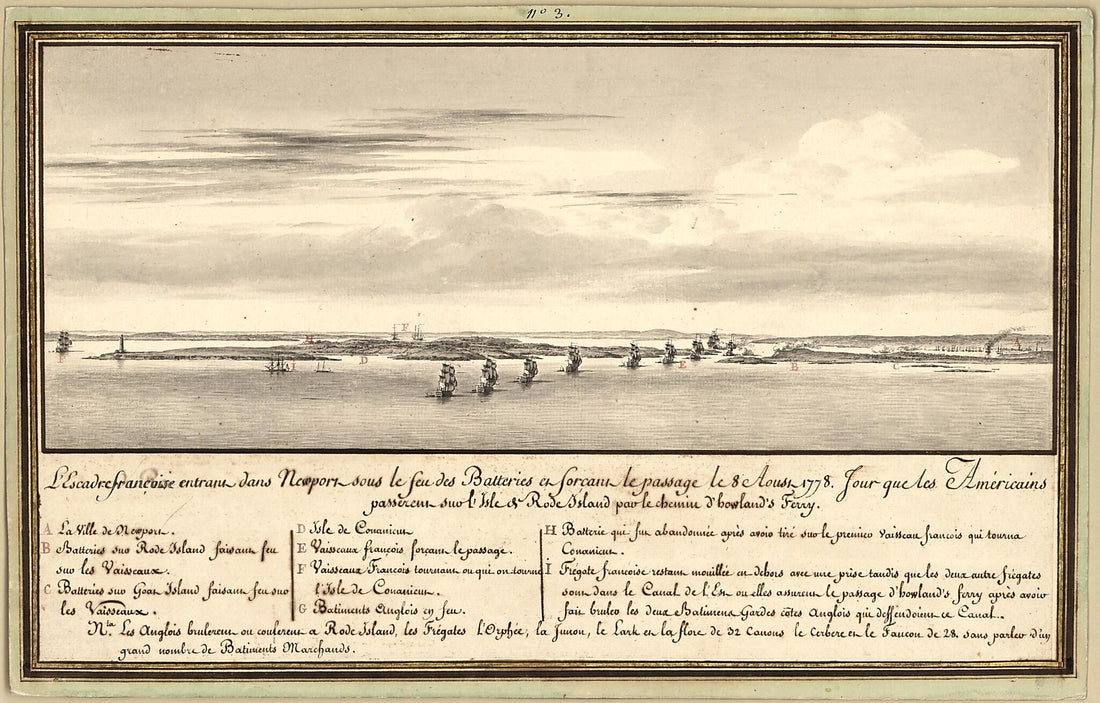 nº 3.
F
H
A
I
D
E
B
C
L'Escadre françoise entrant dans Newport sous le feu des Batteries et forçant le passage le 8 Aoust 1778. Jour que les Américains
passèrent sur l'Isle de Rode Island par le chemin d'howland's Ferry.
A La Ville de Newport.
B Batteries sur Rode Island faisant feu
sur les Vaisseaux.
C Batteries sur Goat Island faisant feu sur
les Vaisseaux.
D Isle de Conanicut
E Vaisseaux françois forçant le passage.
F Vaisseaux François tournant ou qui on tourné
l'Isle de Conanicut.
G Batiments Anglois en feu.
H Batterie qui fut abandonnée après avoir tiré sur le premier Vaisseau francois qui tourna
Conanicut.
I Frégate francoise restant mouillée en dehors avec une prise tandis que les deux autre frégates
sont dans le Canal de l'Est ou elles assurent le passage d'howland's ferry après avoir
fait bruler les deux Batimens Gardes côtes Anglois qui deffendoient ce Canal.
Nta. Les Anglois brulerent ou coulerent a Rode Island, les Frégates l'Orphée, la Junon, le Lark et la flore de 32 Canons le Cerbere et le Faucon de 28. sans parler d'un
grand nombre de Batiments Marchands.